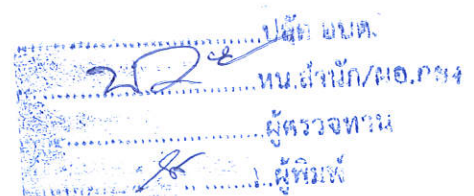 ปลัด อบต.
หน.สำนัก/ผอ.กอง
ผู้ตรวจทาน
ผู้พิมพ์